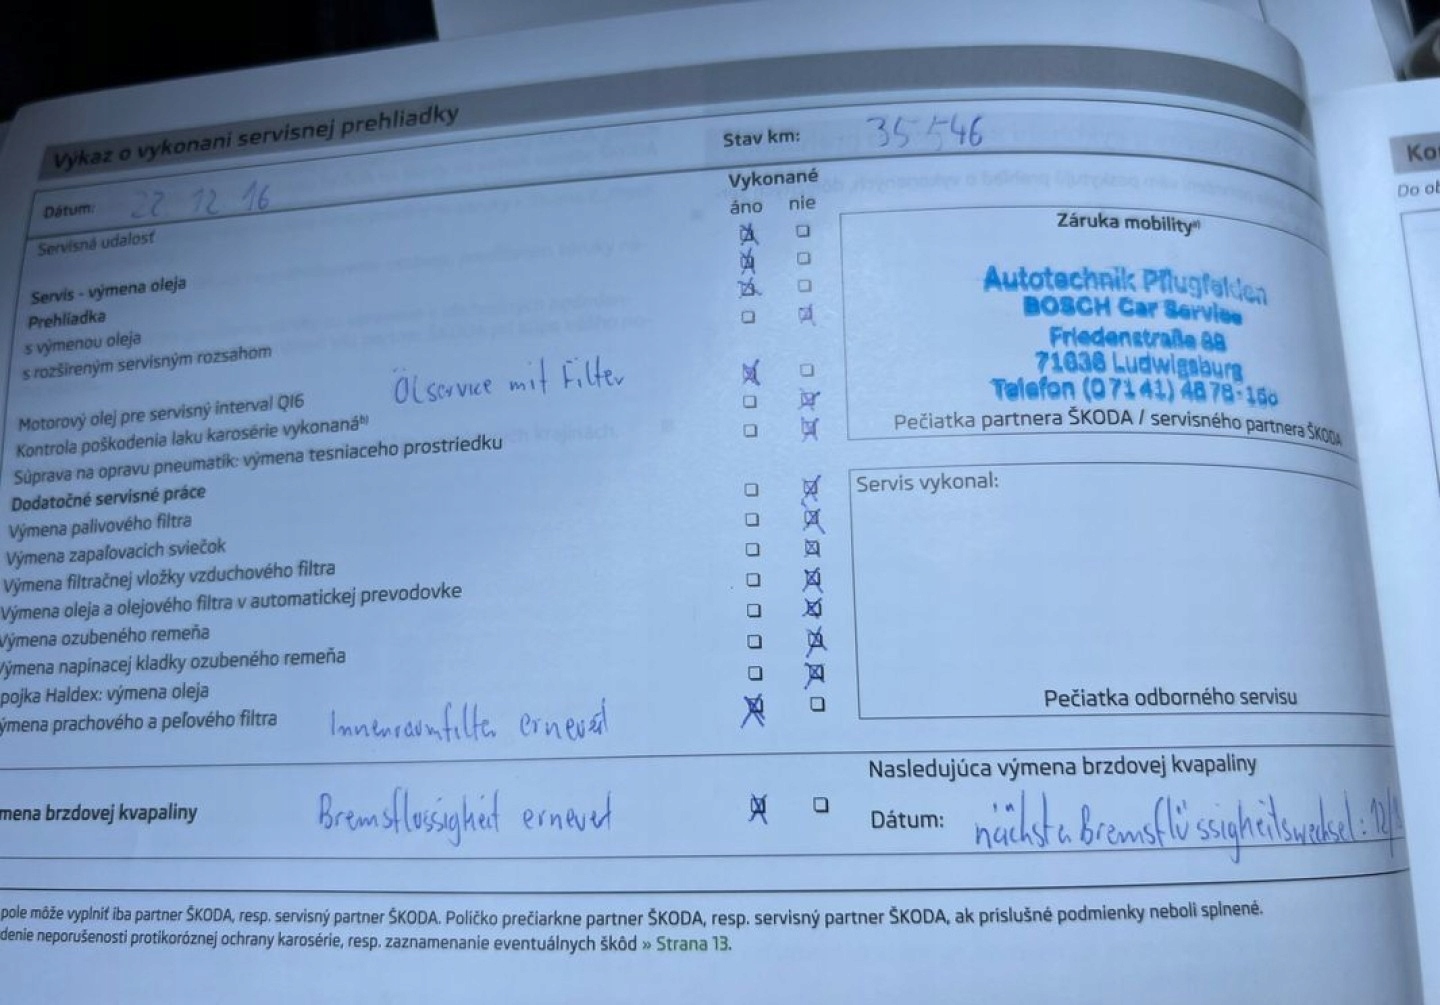 Výkaz o vykonaní servisnej prehliadky
Dátum: 22 12 16
Stav km: 35 546
Servisná udalosť
Vykonané
áno nie
Servis - výmena oleja
Prehliadka
s výmenou oleja
s rozšíreným servisným rozsahom
Motorový olej pre servisný interval QI6
Ölservice mit Filter
Kontrola poškodenia laku karosérie vykonaná b)
Súprava na opravu pneumatík: výmena tesniaceho prostriedku
Dodatočné servisné práce
Výmena palivového filtra
Výmena zapaľovacích sviečok
Výmena filtračnej vložky vzduchového filtra
Výmena oleja a olejového filtra v automatickej prevodovke
Výmena ozubeného remeňa
Výmena napínacej kladky ozubeného remeňa
pojka Haldex: výmena oleja
ýmena prachového a peľového filtra
Innenraumfilter erneuert
Záruka mobility a)
Autotechnik Pflugfelden
BOSCH Car Service
Friedenstraße
71636 Ludwigsburg
Telefon (0 71 41) 48 78-160
Pečiatka partnera ŠKODA / servisného partnera ŠKODA
Servis vykonal:
Pečiatka odborného servisu
mena brzdovej kvapaliny
Bremsflüssigkeit erneuert
Nasledujúca výmena brzdovej kvapaliny
Dátum: nächste Bremsflüssigkeitswechsel: 12/
pole môže vyplniť iba partner ŠKODA, resp. servisný partner ŠKODA. Políčko prečiarkne partner ŠKODA, resp. servisný partner ŠKODA, ak príslušné podmienky neboli splnené.
denie neporušenosti protikoróznej ochrany karosérie, resp. zaznamenanie eventuálnych škôd » Strana 13.
Ko
Do ob